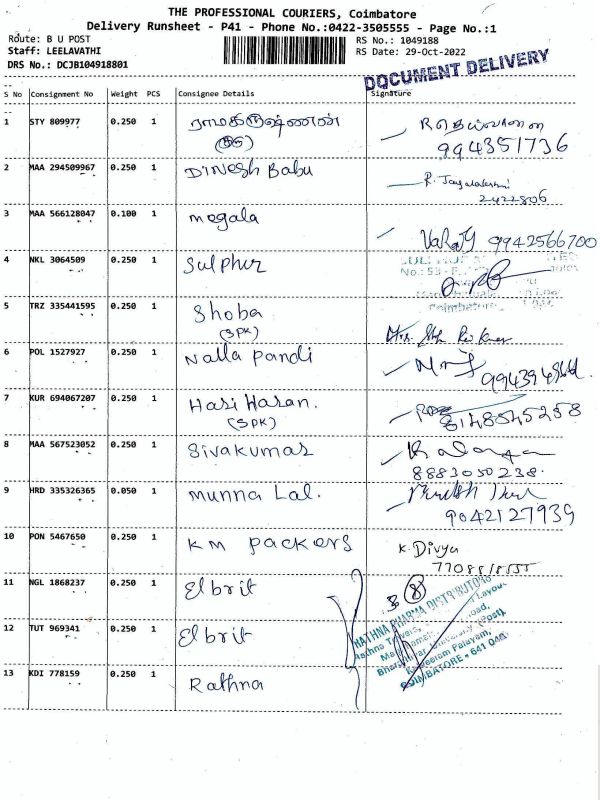 THE PROFESSIONAL COURIERS, Coimbatore
Delivery Runsheet - P41 - Phone No.:0422-3505555 - Page No.:1
Route: B U POST
Staff: LEELAVATHI
DRS No.: DCJB104918801
RS No.: 1049188
RS Date: 29-Oct-2022
DOCUMENT DELIVERY
S No Consignment No Weight PCS Consignee Details Signature
1 STY 809977 0.250 1 ராமகிருஷ்ணன்
9944351736
2 MAA 294509967 0.250 1 Dinesh Babu R. Jayalakshmi
2422806
3 MAA 566128047 0.100 1 megala
9942566700
4 NKL 3064509 0.250 1 Sulphur
Coimbatore
5 TRZ 335441595 0.250 1 Shoba
(SPK)
6 POL 1527927 0.250 1 Nalla pandi
7 KUR 694067207 0.250 1 Hari Haran.
(SPK)
8148545258
8 MAA 567523052 0.250 1 Sivakumar
8883050238.
9 HRD 335326365 0.050 1 munna Lal.
9042127939
10 PON 5467650 0.250 1 KM packers K. Divya
11 NGL 1868237 0.250 1 Elbrit
8
RATHNA PHARMA DISTRIBUTORS
Rathna Towers,
12 TUT 969341 0.250 1 Elbrit
Bharathiar University (Post),
COIMBATORE - 641 046
13 KDI 778159 0.250 1 Rathna